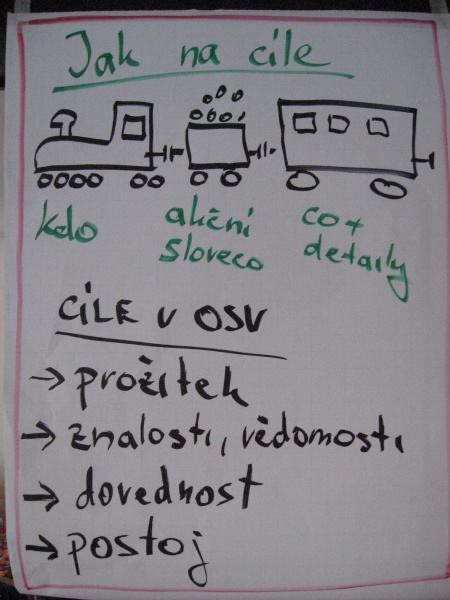 Jak na cíle
kdo
akční
sloveco
co +
detaily
CÍLE V OSV
→ prožitek
→ znalosti, vědomosti
→ dovednost
→ postoj